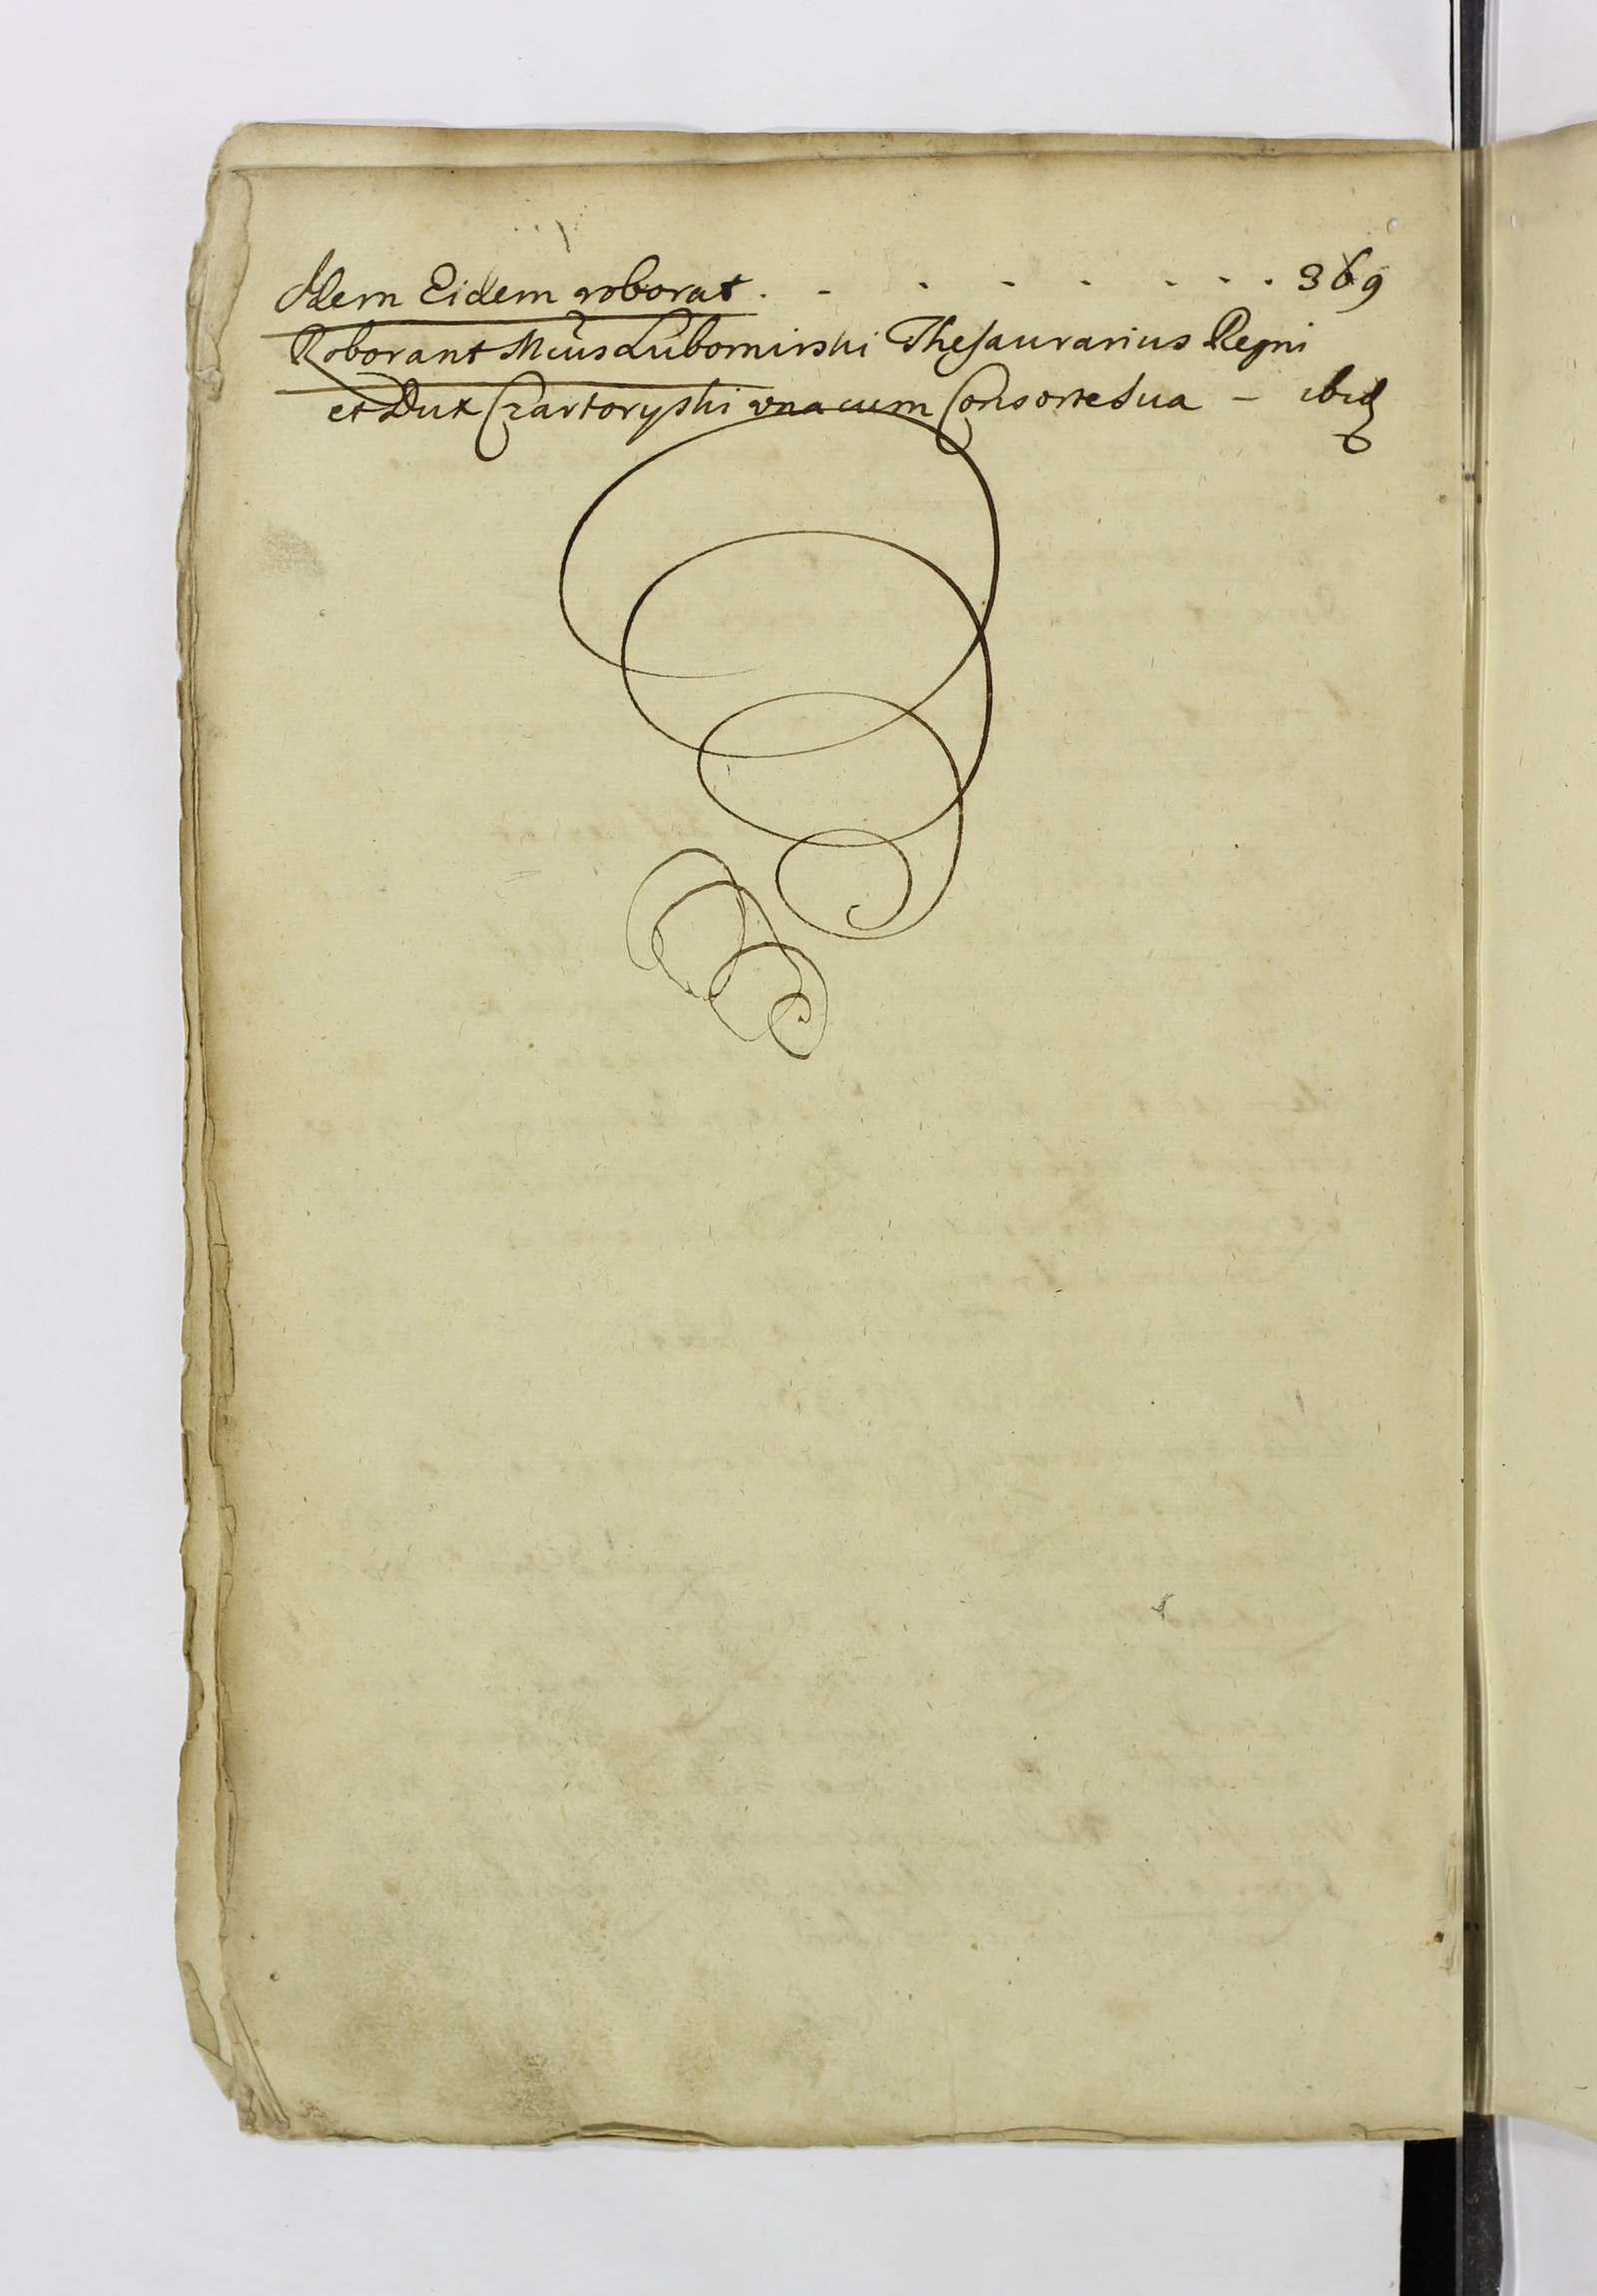 Idem Eidem roborat . - . - . - . . 369
Roborant Mcus Lubomirski Thesaurarius Regni
et Dux Czartoryski una cum Consorte sua - ibid